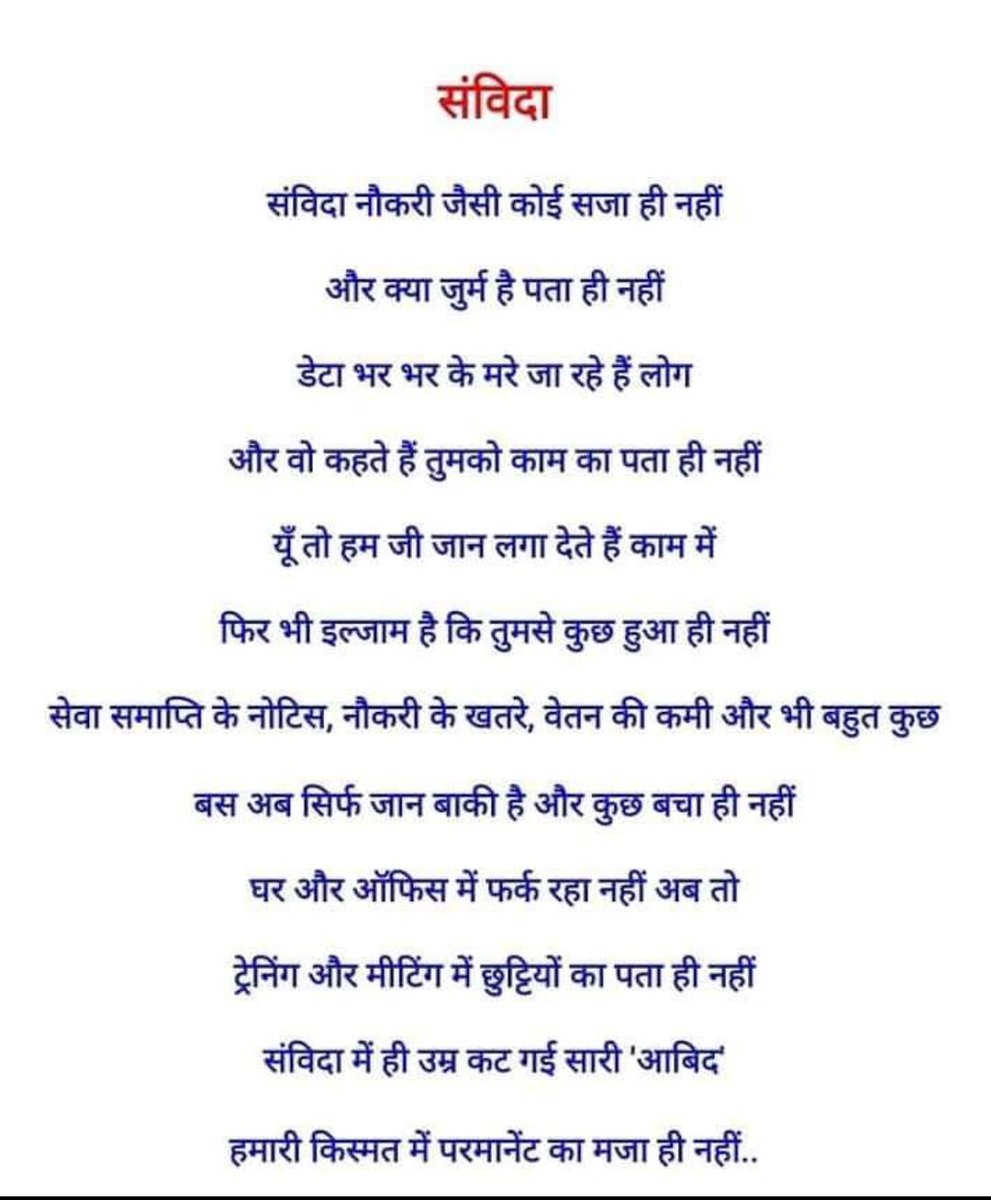 संविदा
संविदा नौकरी जैसी कोई सजा ही नहीं
और क्या जुर्म है पता ही नहीं
डेटा भर भर के मरे जा रहे हैं लोग
और वो कहते हैं तुमको काम का पता ही नहीं
यूँ तो हम जी जान लगा देते हैं काम में
फिर भी इल्जाम है कि तुमसे कुछ हुआ ही नहीं
सेवा समाप्ति के नोटिस, नौकरी के खतरे, वेतन की कमी और भी बहुत कुछ
बस अब सिर्फ जान बाकी है और कुछ बचा ही नहीं
घर और ऑफिस में फर्क रहा नहीं अब तो
ट्रेनिंग और मीटिंग में छुट्टियों का पता ही नहीं
संविदा में ही उम्र कट गई सारी 'आबिद'
हमारी किस्मत में परमानेंट का मजा ही नहीं..